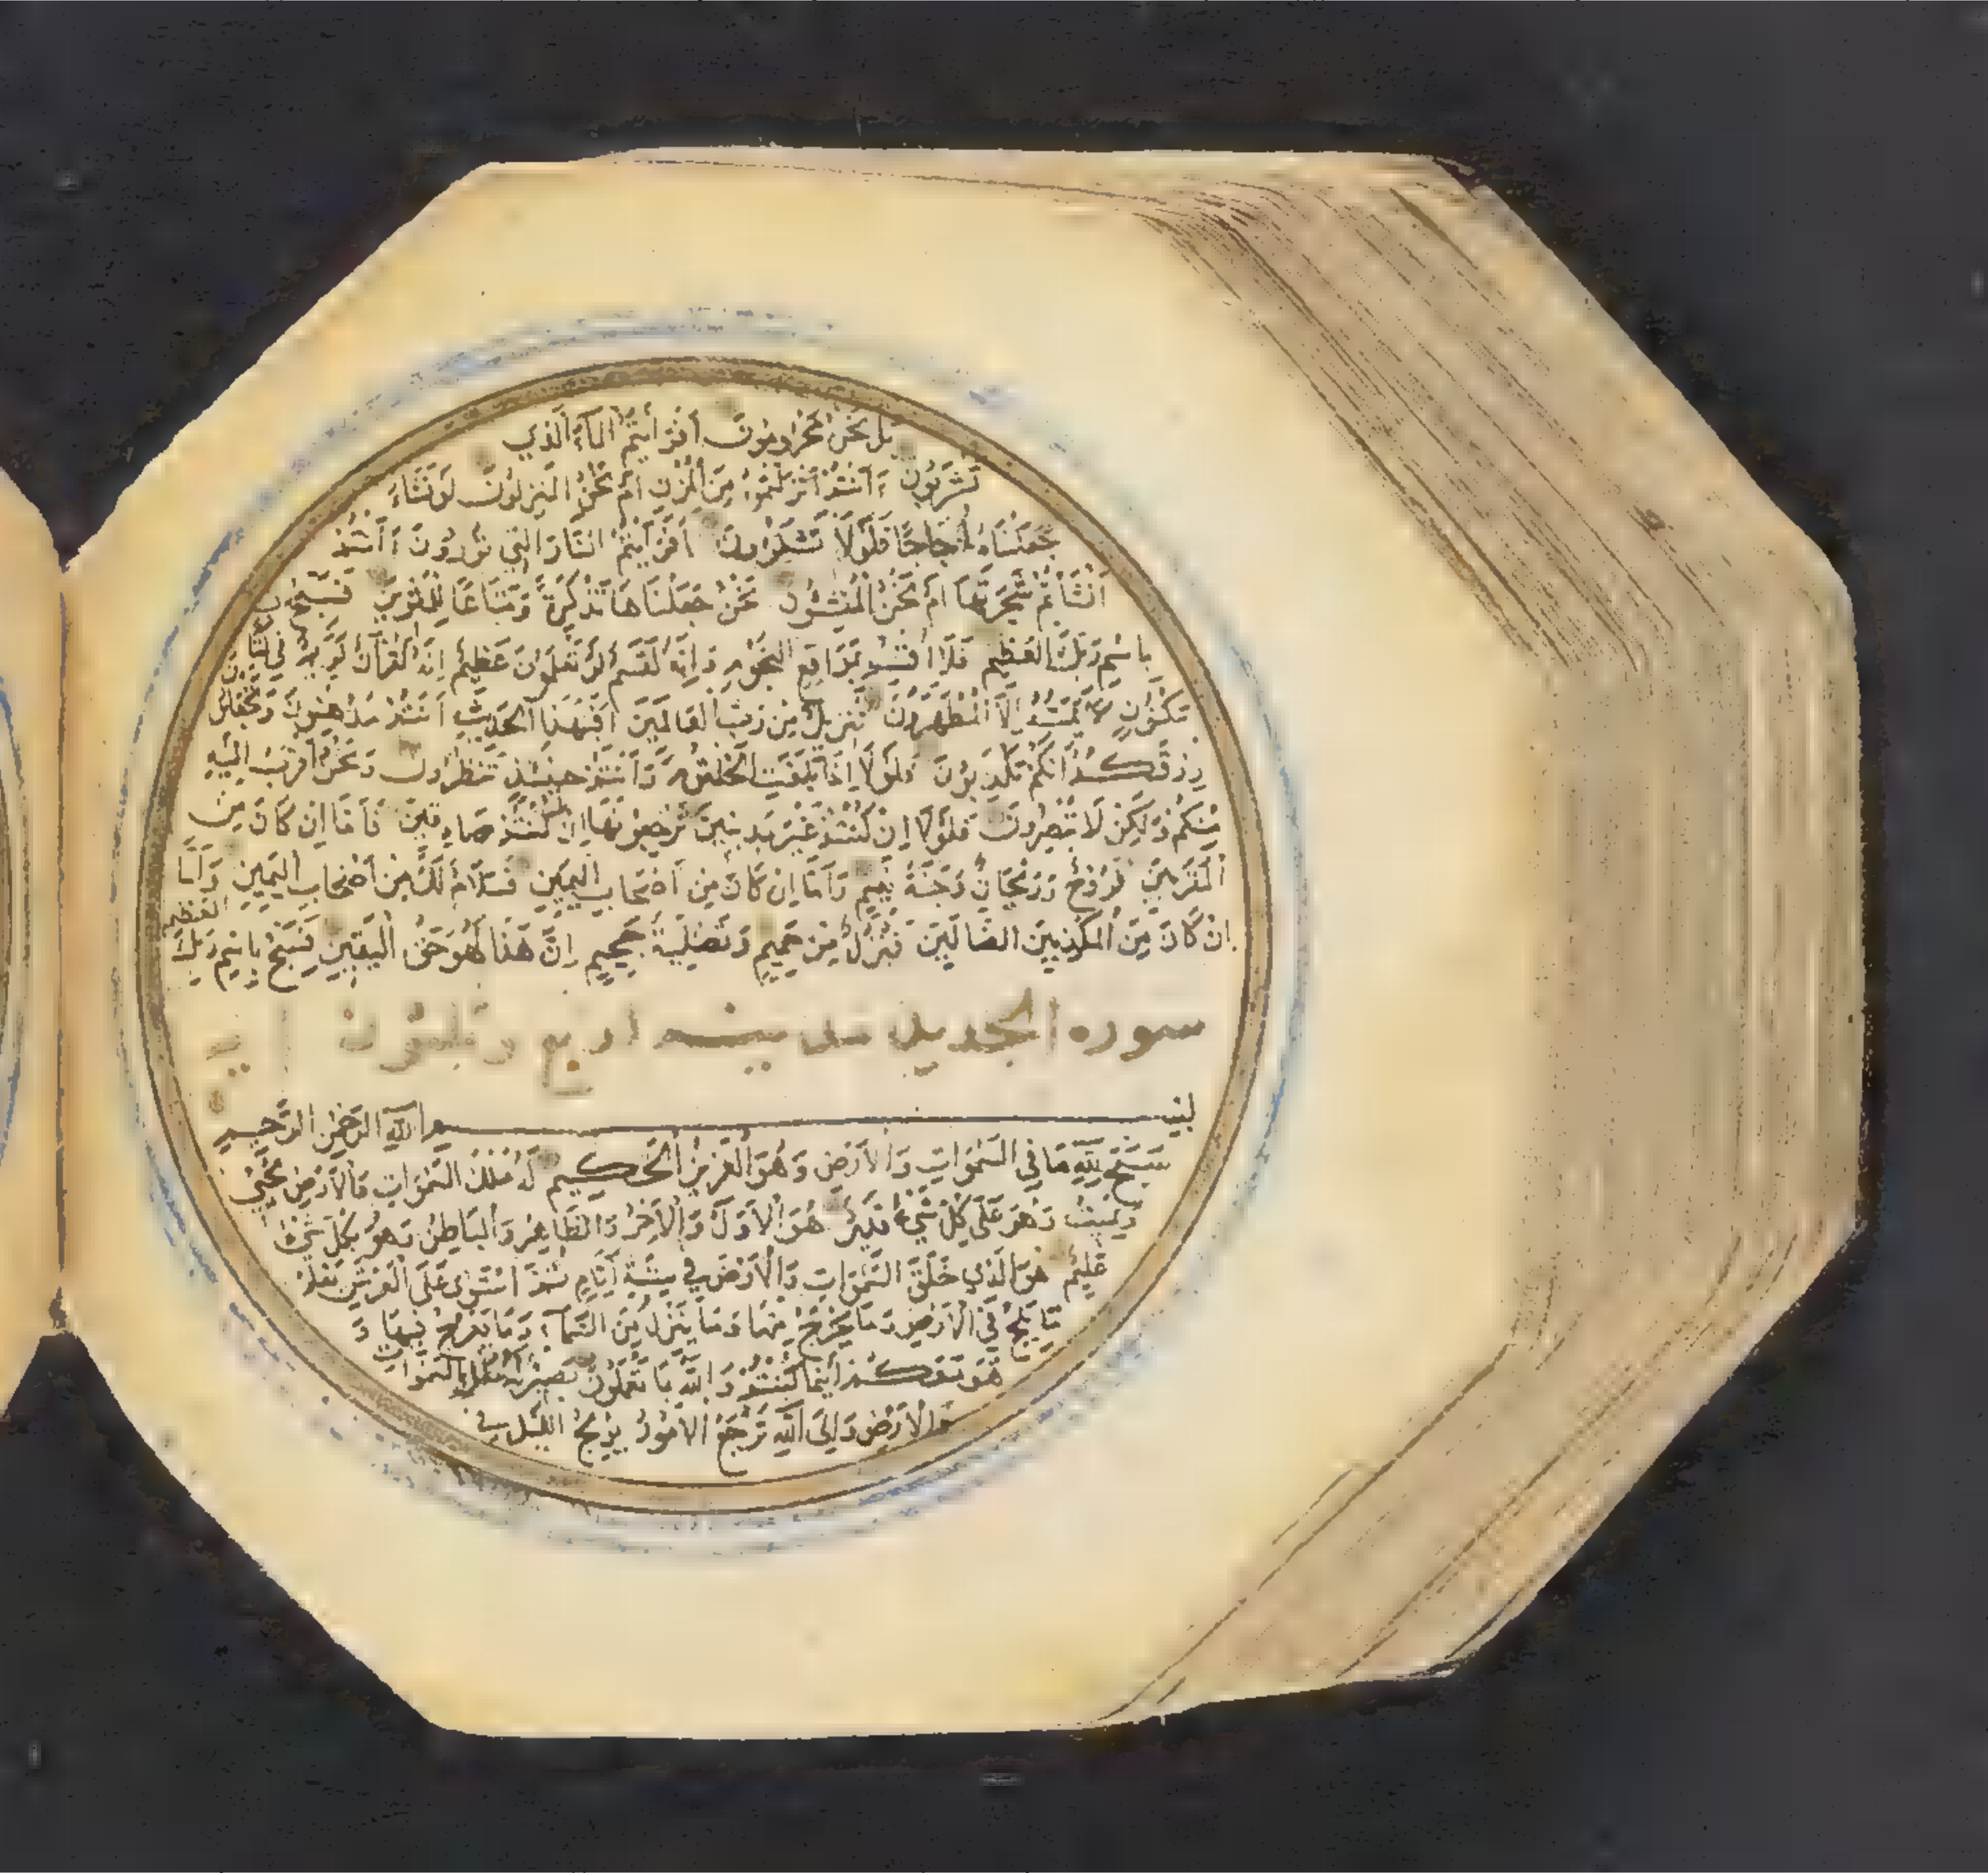 بَلْ نَحْنُ مَحْرُومُونَ أَفَرَأَيْتُمُ الْمَآءَ الَّذِي
تَشْرَبُونَ ءَأَنْتُمْ أَنْزَلْتُمُوهُ مِنَ الْمُزْنِ أَمْ نَحْنُ الْمُنْزِلُونَ لَوْ نَشَاءُ
جَعَلْنَاهُ أُجَاجًا فَلَوْلَا تَشْكُرُونَ أَفَرَأَيْتُمُ النَّارَ الَّتِي تُورُونَ ءَأَنْتُمْ
أَنْشَأْتُمْ شَجَرَتَهَا أَمْ نَحْنُ الْمُنْشِؤُنَ نَحْنُ جَعَلْنَاهَا تَذْكِرَةً وَمَتَاعًا لِلْمُقْوِينَ فَسَبِّحْ
بِاسْمِ رَبِّكَ الْعَظِيمِ فَلَا أُقْسِمُ بِمَوَاقِعِ النُّجُومِ وَإِنَّهُ لَقَسَمٌ لَوْ تَعْلَمُونَ عَظِيمٌ إِنَّهُ لَقُرْآنٌ كَرِيمٌ فِي كِتَابٍ
مَكْنُونٍ لَا يَمَسُّهُ إِلَّا الْمُطَهَّرُونَ تَنْزِيلٌ مِنْ رَبِّ الْعَالَمِينَ أَفَبِهَذَا الْحَدِيثِ أَنْتُمْ مُدْهِنُونَ وَتَجْعَلُونَ
رِزْقَكُمْ أَنَّكُمْ تُكَذِّبُونَ فَلَوْلَا إِذَا بَلَغَتِ الْحُلْقُومَ وَأَنْتُمْ حِينَئِذٍ تَنْظُرُونَ وَنَحْنُ أَقْرَبُ إِلَيْهِ
مِنْكُمْ وَلَكِنْ لَا تُبْصِرُونَ فَلَوْلَا إِنْ كُنْتُمْ غَيْرَ مَدِينِينَ تَرْجِعُونَهَا إِنْ كُنْتُمْ صَادِقِينَ فَأَمَّا إِنْ كَانَ مِنَ
الْمُقَرَّبِينَ فَرَوْحٌ وَرَيْحَانٌ وَجَنَّةُ نَعِيمٍ وَأَمَّا إِنْ كَانَ مِنْ أَصْحَابِ الْيَمِينِ فَسَلَامٌ لَكَ مِنْ أَصْحَابِ الْيَمِينِ وَأَمَّا
إِنْ كَانَ مِنَ الْمُكَذِّبِينَ الضَّالِّينَ فَنُزُلٌ مِنْ حَمِيمٍ وَتَصْلِيَةُ جَحِيمٍ إِنَّ هَذَا لَهُوَ حَقُّ الْيَقِينِ فَسَبِّحْ بِاسْمِ رَبِّكَ الْعَظِيمِ
سوره الحديد مدنيه اربع وثلثون اية
بِسْمِ اللَّهِ الرَّحْمَنِ الرَّحِيمِ
سَبَّحَ لِلَّهِ مَا فِي السَّمَوَاتِ وَالْأَرْضِ وَهُوَ الْعَزِيزُ الْحَكِيمُ لَهُ مُلْكُ السَّمَوَاتِ وَالْأَرْضِ يُحْيِي
وَيُمِيتُ وَهُوَ عَلَى كُلِّ شَيْءٍ قَدِيرٌ هُوَ الْأَوَّلُ وَالْآخِرُ وَالظَّاهِرُ وَالْبَاطِنُ وَهُوَ بِكُلِّ شَيْءٍ
عَلِيمٌ هُوَ الَّذِي خَلَقَ السَّمَوَاتِ وَالْأَرْضَ فِي سِتَّةِ أَيَّامٍ ثُمَّ اسْتَوَى عَلَى الْعَرْشِ يَعْلَمُ
مَا يَلِجُ فِي الْأَرْضِ وَمَا يَخْرُجُ مِنْهَا وَمَا يَنْزِلُ مِنَ السَّمَآءِ وَمَا يَعْرُجُ فِيهَا وَ
هُوَ مَعَكُمْ أَيْنَمَا كُنْتُمْ وَاللَّهُ بِمَا تَعْمَلُونَ بَصِيرٌ لَهُ مُلْكُ السَّمَوَاتِ
وَالْأَرْضِ وَإِلَى اللَّهِ تُرْجَعُ الْأُمُورُ يُولِجُ اللَّيْلَ فِي